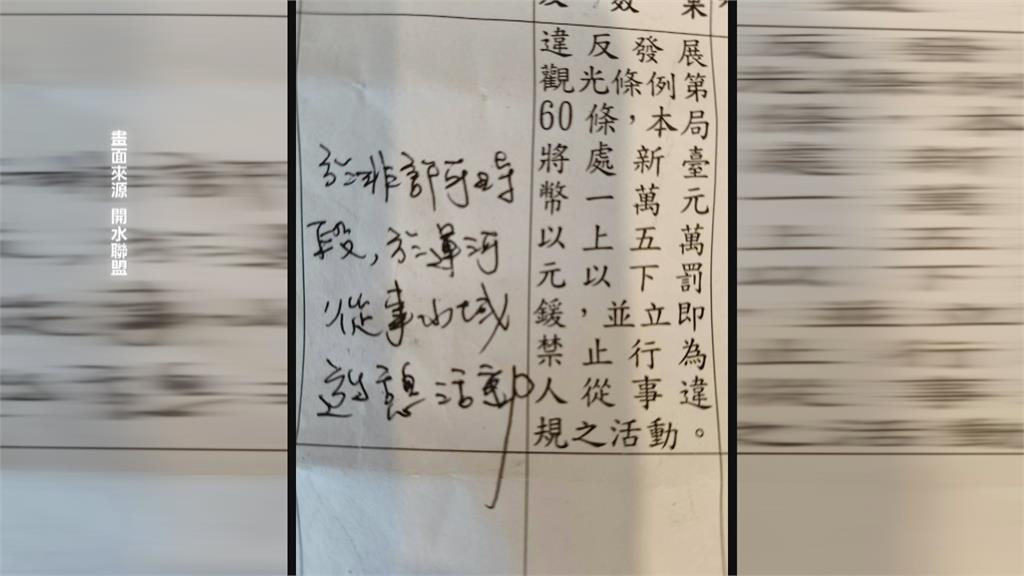 畫面來源 開水聯盟
於非許可時
段,於運河
從事水域
遊憩活動
果
違反發展
觀光條例第
60條,本局
將處新臺
幣一萬元
以上五萬
元以下罰
鍰,並立即
禁止行為
人從事違
規之活動。